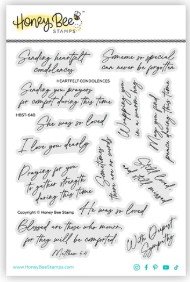 Honey Bee
STAMPS
Sending heartfelt
condolences
Someone so special
can never be forgotten
HEARTFELT CONDOLENCES
Sending you prayers
for comfort during this time
HBST-640
She was so loved
Wrapping you
in a warm hug
I love you dearly
Praying for you
to gather strength
during this time
Sending hugs
Copyright © Honey Bee Stamps
He was so loved
Blessed are those who mourn,
for they will be comforted
Matthew 5:4
With Deepest
Sympathy
www.HoneyBeeStamps.com